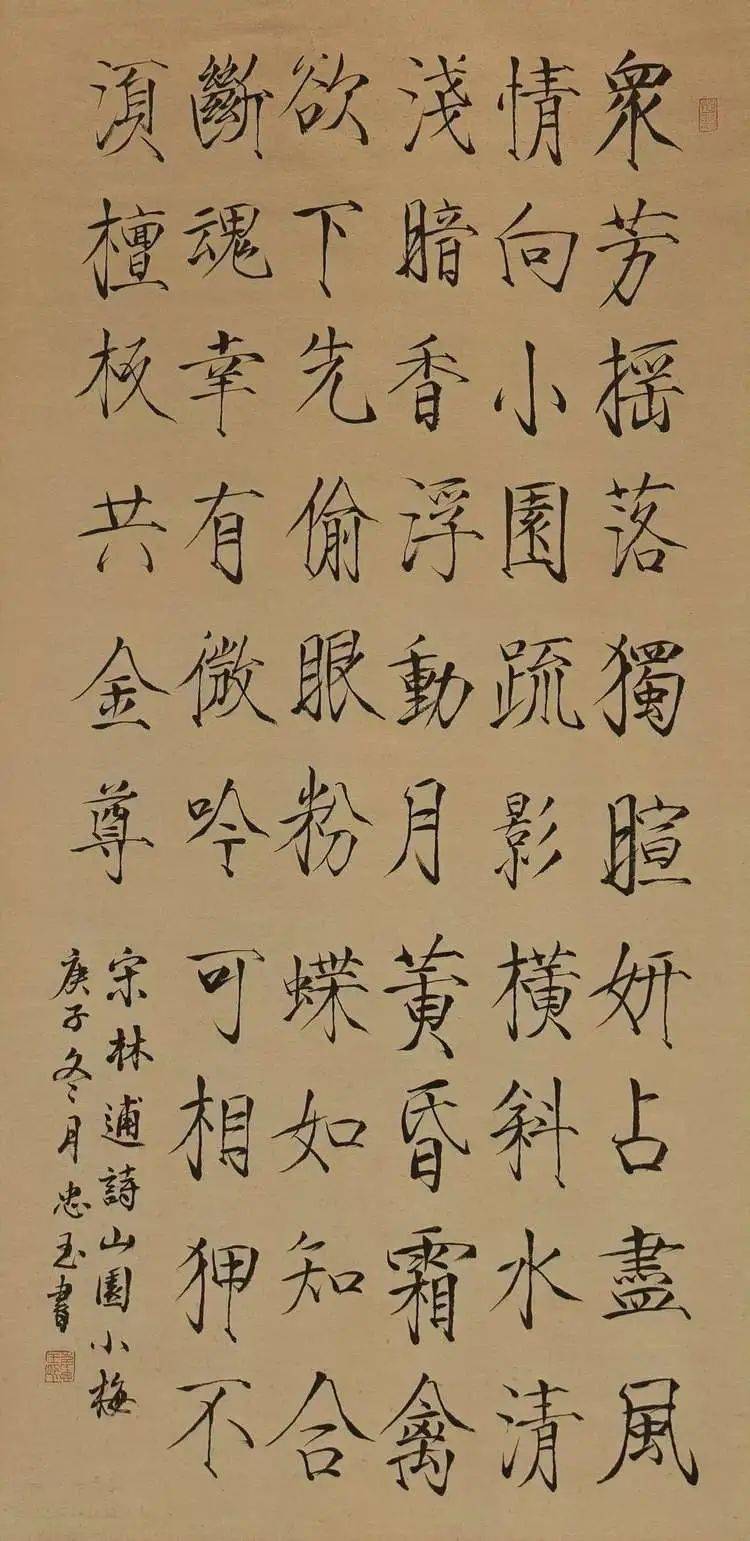 眾芳搖落獨暄妍占盡風
情向小園疏影橫斜水清
淺暗香浮動月黃昏霜禽
欲下先偷眼粉蝶如知合
斷魂幸有微吟可相狎不
湏檀板共金尊
宋林逋詩山園小梅
庚子冬月忠玉書